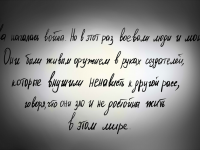 ва началась война. Но в этот раз воевали люди и мо
Они были живым оружием в руках создателей,
которые внушили ненависть к другой расе,
говоря, что они зло и не достойны жить
в этом мире.